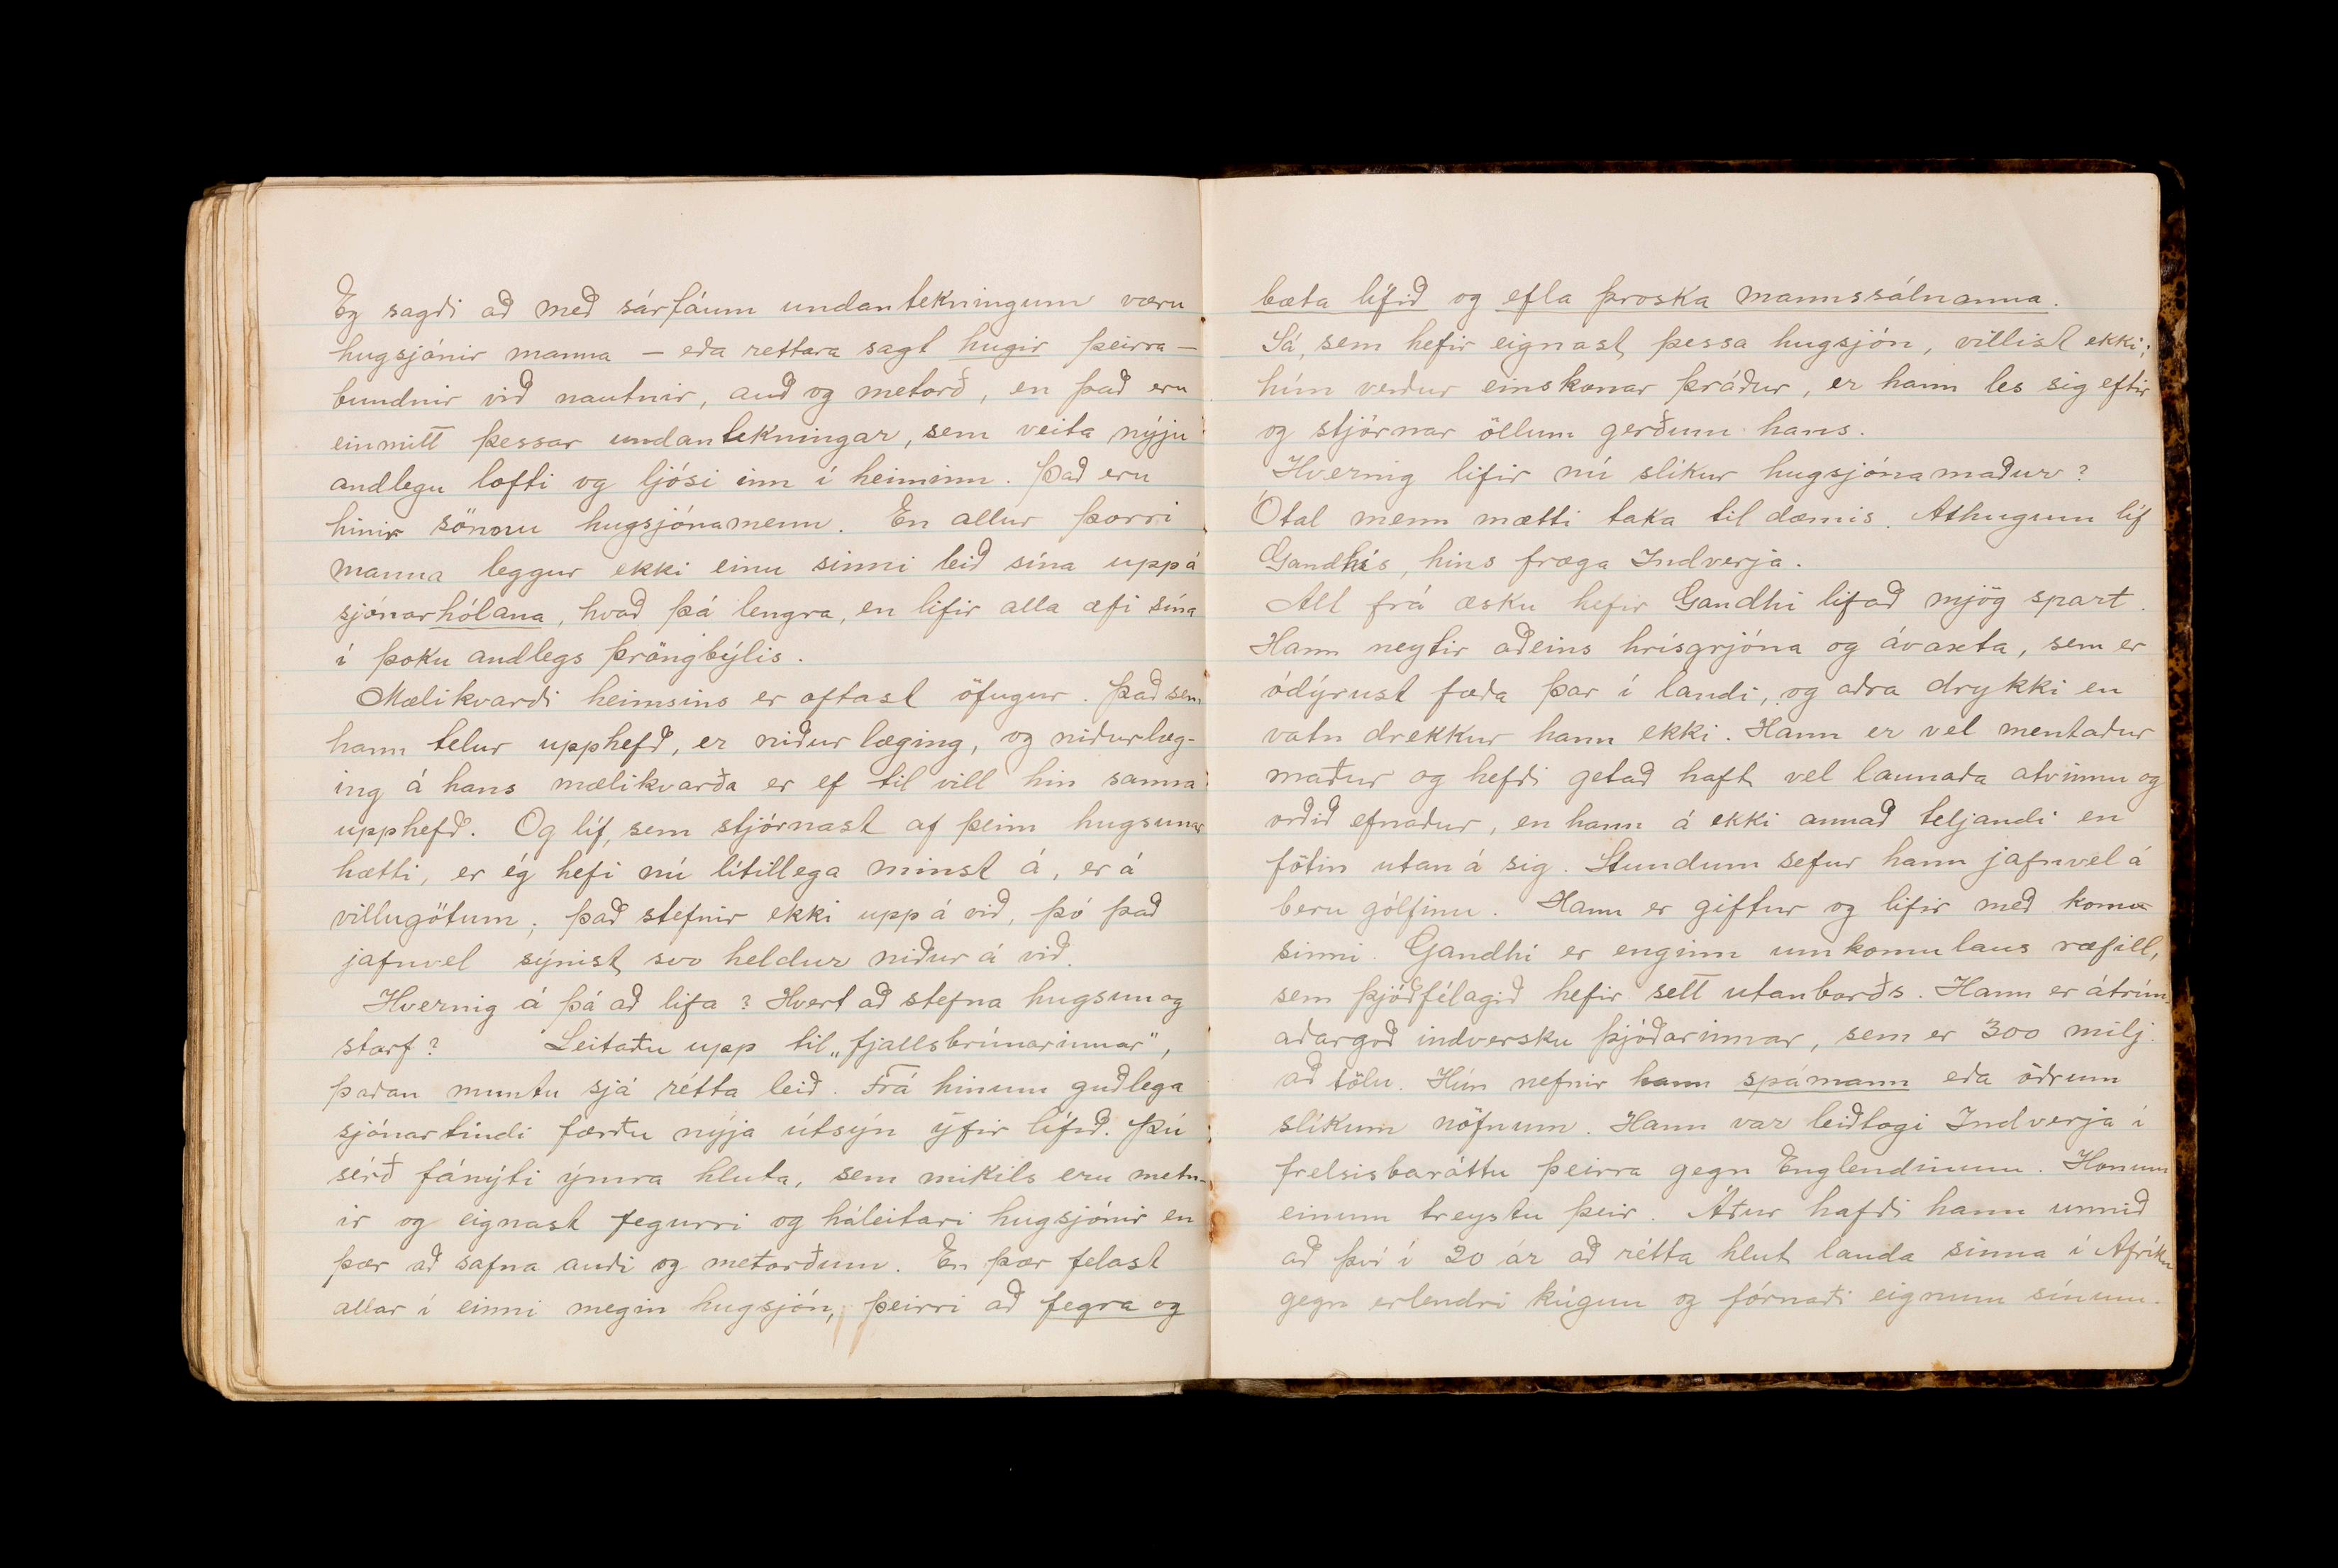 Eg sagði að með sárfáum undantekningum væru
hugsjónir manna — eða rettara sagt hugir þeirra —
bundnir við nautnir, auð og metorð, en það eru
einmitt þessar undantekningar, sem veita nýju
andlegu lofti og ljósi inn í heiminn. Það eru
hinir sönnu hugsjónamenn. En allur þorri
manna leggur ekki einu sinni leið sína upp á
sjónarhólana, hvað þá lengra, en lifir alla æfi sína
í þoku andlegs þröngbýlis.
Mælikvarði heimsins er oftast öfugur. Það sem
hann telur upphefð, er niðurlæging, og niðurlæg-
ing á hans mælikvarða er ef til vill hin sanna
upphefð. Og líf, sem stjórnast af þeim hugsunar
hætti, er ég hefi nú lítillega minst á, er á
villugötum; það stefnir ekki upp á við, þó það
jafnvel sýnist, svo heldur niður á við.
Hvernig á þá að lifa? Hvert að stefna hugsun og
starf? Leitaðu upp til „fjallsbrúnarinnar",
þaðan muntu sjá rétta leið. Frá hinum guðlega
sjónartindi færðu nýja útsýn yfir lífið. Þú
sérð fánýti ýmra hluta, sem mikils eru metn-
ir og eignast fegurri og háleitari hugsjónir en
þær að safna auði og metorðum. En þær felast
allar í einni megin hugsjón, þeirri að fegra og
bæta lífið og efla þroska mannssálnanna.
Sá, sem hefir eignast þessa hugsjón, villist ekki;
hún verður einskonar þráður, er hann les sig eftir
og stjórnar öllum gerðum hans.
Hvernig lifir nú slíkur hugsjónamaður?
Ótal menn mætti taka til dæmis. Athugum líf
Gandhis, hins fræga Indverja.
Alt frá æsku hefir Gandhi lifað mjög spart.
Hann neytir aðeins hrísgrjóna og ávaxta, sem er
ódýrust fæða þar í landi, og aðra drykki en
vatn drekkur hann ekki. Hann er vel mentaður
maður og hefði getað haft vel launaða atvinnu og
orðið efnaður, en hann á ekki annað teljandi en
fötin utan á sig. Stundum sefur hann jafnvel á
beru gólfinu. Hann er giftur og lifir með konu
sinni. Gandhi er enginn umkomulaus ræfill,
sem þjóðfélagið hefir sett utanborðs. Hann er átrún-
aðargoð indversku þjóðarinnar, sem er 300 milj.
að tölu. Hún nefnir hann spámann eða öðrum
slíkum nöfnum. Hann var leiðtogi Indverja í
frelsisbaráttu þeirra gegn Englendinum. Honum
einum treystu þeir. Áður hafði hann unnið
að því í 20 ár að rétta hlut landa sinna í Afríku
gegn erlendri kúgun og fórnaði eignum sínum.